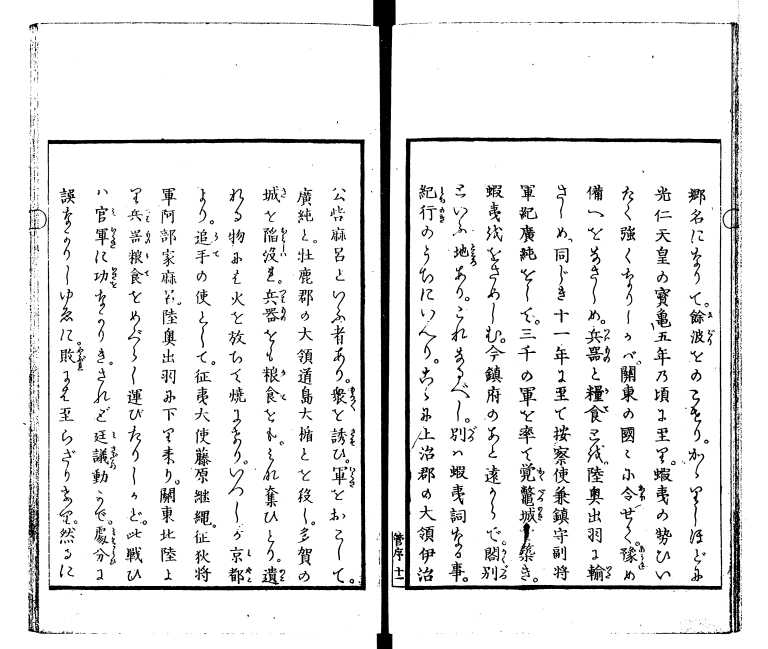 郷名になりて。餘波をのこせり。かゝりしほどに
光仁天皇の寳亀五年乃頃に至り。蝦夷の勢ひい
たく強くなりしかバ。關東の國々に令せて。豫め
備へをなさしめ。兵器と糧食とを。陸奥出羽に輸
さしめ。同じき十一年に至て按察使兼鎮守副将
軍紀廣純をして。三千の軍を率て覚鱉城を築き。
蝦夷を
といふ地あり。これなるべし。別ハ蝦夷詞なる事。
紀行のうちにいへり。こゝに上治郡の大領伊治
公呰麻呂といふ者あり。衆を誘ひ。軍をおこして。
廣純と。牡鹿郡の大領道島大楯とを殺し。多賀の
城を陥没し。兵器をも粮食をも。みな奪ひとり。遺
れる物にハ火を放ちて焼になり。いつしか京都
より。追手の使として。征夷大使藤原継縄。征狄将
軍阿部家麻呂。陸奥出羽に下り来り。關東北陸よ
り兵器粮食をめぐらし運びたりしかど。此戦ひ
ハ官軍に功なかりき。されど廷議動かで。處分に
誤なかりしゆゑに。敗にも至らざりきなり。然るに
管序 十一